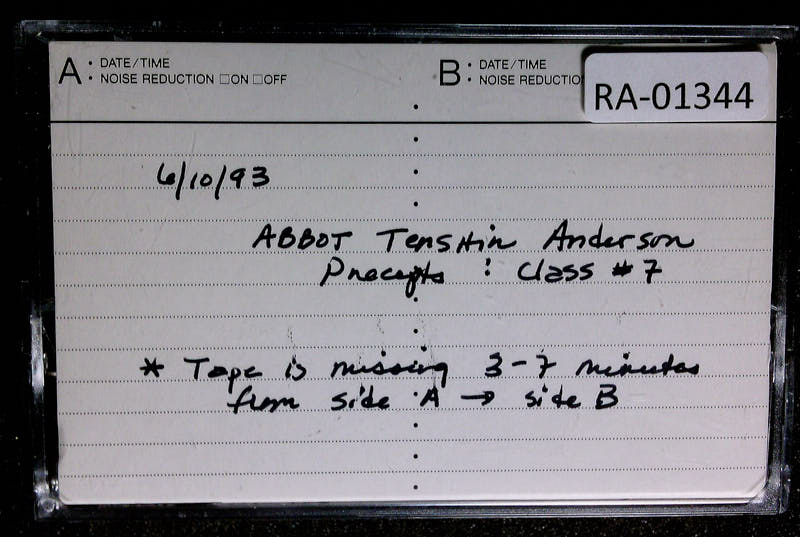 A : DATE/TIME
NOISE REDUCTION □ON □OFF
B : DATE/TIME
NOISE REDUCTIO
RA-01344
6/10/93
ABBOT Tenshin Anderson
Precepts : Class #7
* Tape is missing 3-7 minutes
from side A → side B